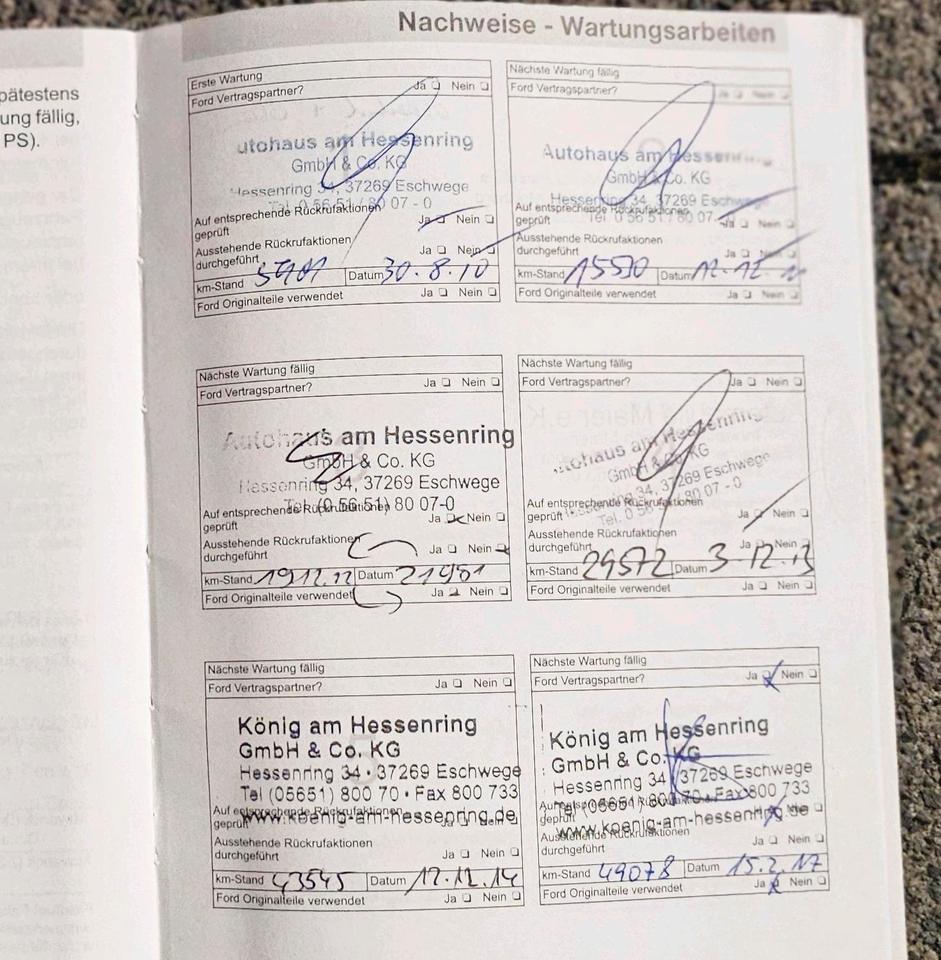 pätestens
ung fällig,
PS).
Nachweise - Wartungsarbeiten
Erste Wartung
Ford Vertragspartner? Ja Nein
utohaus am Hessenring
GmbH & Co. KG
Hessenring 34, 37269 Eschwege
Tel. 0 56 51 / 80 07 - 0
Auf entsprechende Rückrufaktionen
geprüft Ja Nein
Ausstehende Rückrufaktionen
durchgeführt Ja Nein
km-Stand Datum 30.8.10
Ford Originalteile verwendet Ja Nein
Nächste Wartung fällig
Ford Vertragspartner? Ja Nein
Autohaus am Hessenring
GmbH & Co. KG
Hessenring 34, 37269 Eschwege
Tel. 0 56 51 / 80 07-
Auf entsprechende Rückrufaktionen
geprüft Ja Nein
Ausstehende Rückrufaktionen
durchgeführt Ja Nein
km-Stand 15570 Datum 12.12.
Ford Originalteile verwendet Ja Nein
Nächste Wartung fällig
Ford Vertragspartner? Ja Nein
Autohaus am Hessenring
GmbH & Co. KG
Hessenring 34, 37269 Eschwege
Tel. (0 56 51) 80 07-0
Auf entsprechende Rückrufaktionen
geprüft Ja Nein
Ausstehende Rückrufaktionen
durchgeführt Ja Nein
km-Stand 19.12.12 Datum 21981
Ford Originalteile verwendet Ja Nein
Nächste Wartung fällig
Ford Vertragspartner? Ja Nein
utohaus am Hessenring
GmbH & Co. KG
Hessenring 34, 37269 Eschwege
Tel. 0 56 51 / 80 07 - 0
Auf entsprechende Rückrufaktionen
geprüft Ja Nein
Ausstehende Rückrufaktionen
durchgeführt Ja Nein
km-Stand 29572 Datum 3.12.13
Ford Originalteile verwendet Ja Nein
Nächste Wartung fällig
Ford Vertragspartner? Ja Nein
König am Hessenring
GmbH & Co. KG
Hessenring 34 · 37269 Eschwege
Tel (05651) 800 70 · Fax 800 733
Auf entsprechende Rückrufaktionen
geprüft Ja Nein
www.koenig-am-hessenring.de
Ausstehende Rückrufaktionen
durchgeführt Ja Nein
km-Stand 43545 Datum 12.12.14
Ford Originalteile verwendet Ja Nein
Nächste Wartung fällig
Ford Vertragspartner? Ja Nein
König am Hessenring
GmbH & Co. KG
Hessenring 34 37269 Eschwege
Tel (05651) 800 70 · Fax 800 733
Auf entsprechende Rückrufaktionen
geprüft Ja Nein
www.koenig-am-hessenring.de
Ausstehende Rückrufaktionen
durchgeführt Ja Nein
km-Stand 49078 Datum 15.2.17
Ford Originalteile verwendet Ja Nein